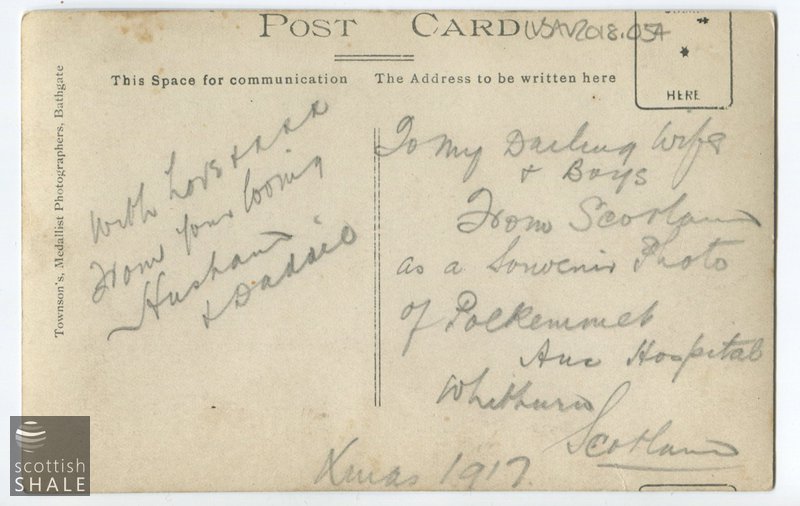 POST CARD
LVSAV2018.054
STAMP
HERE
This Space for communication
The Address to be written here
Townson's, Medallist Photographers, Bathgate
With Love xxxx
From your loving
Husband
& Daddie
To My Darling Wife
& Boys
From Scotland
as a Souvenir Photo
of Polkemmet
Aux Hospital
Whitburn
Scotland
Xmas 1917.
scottish
SHALE